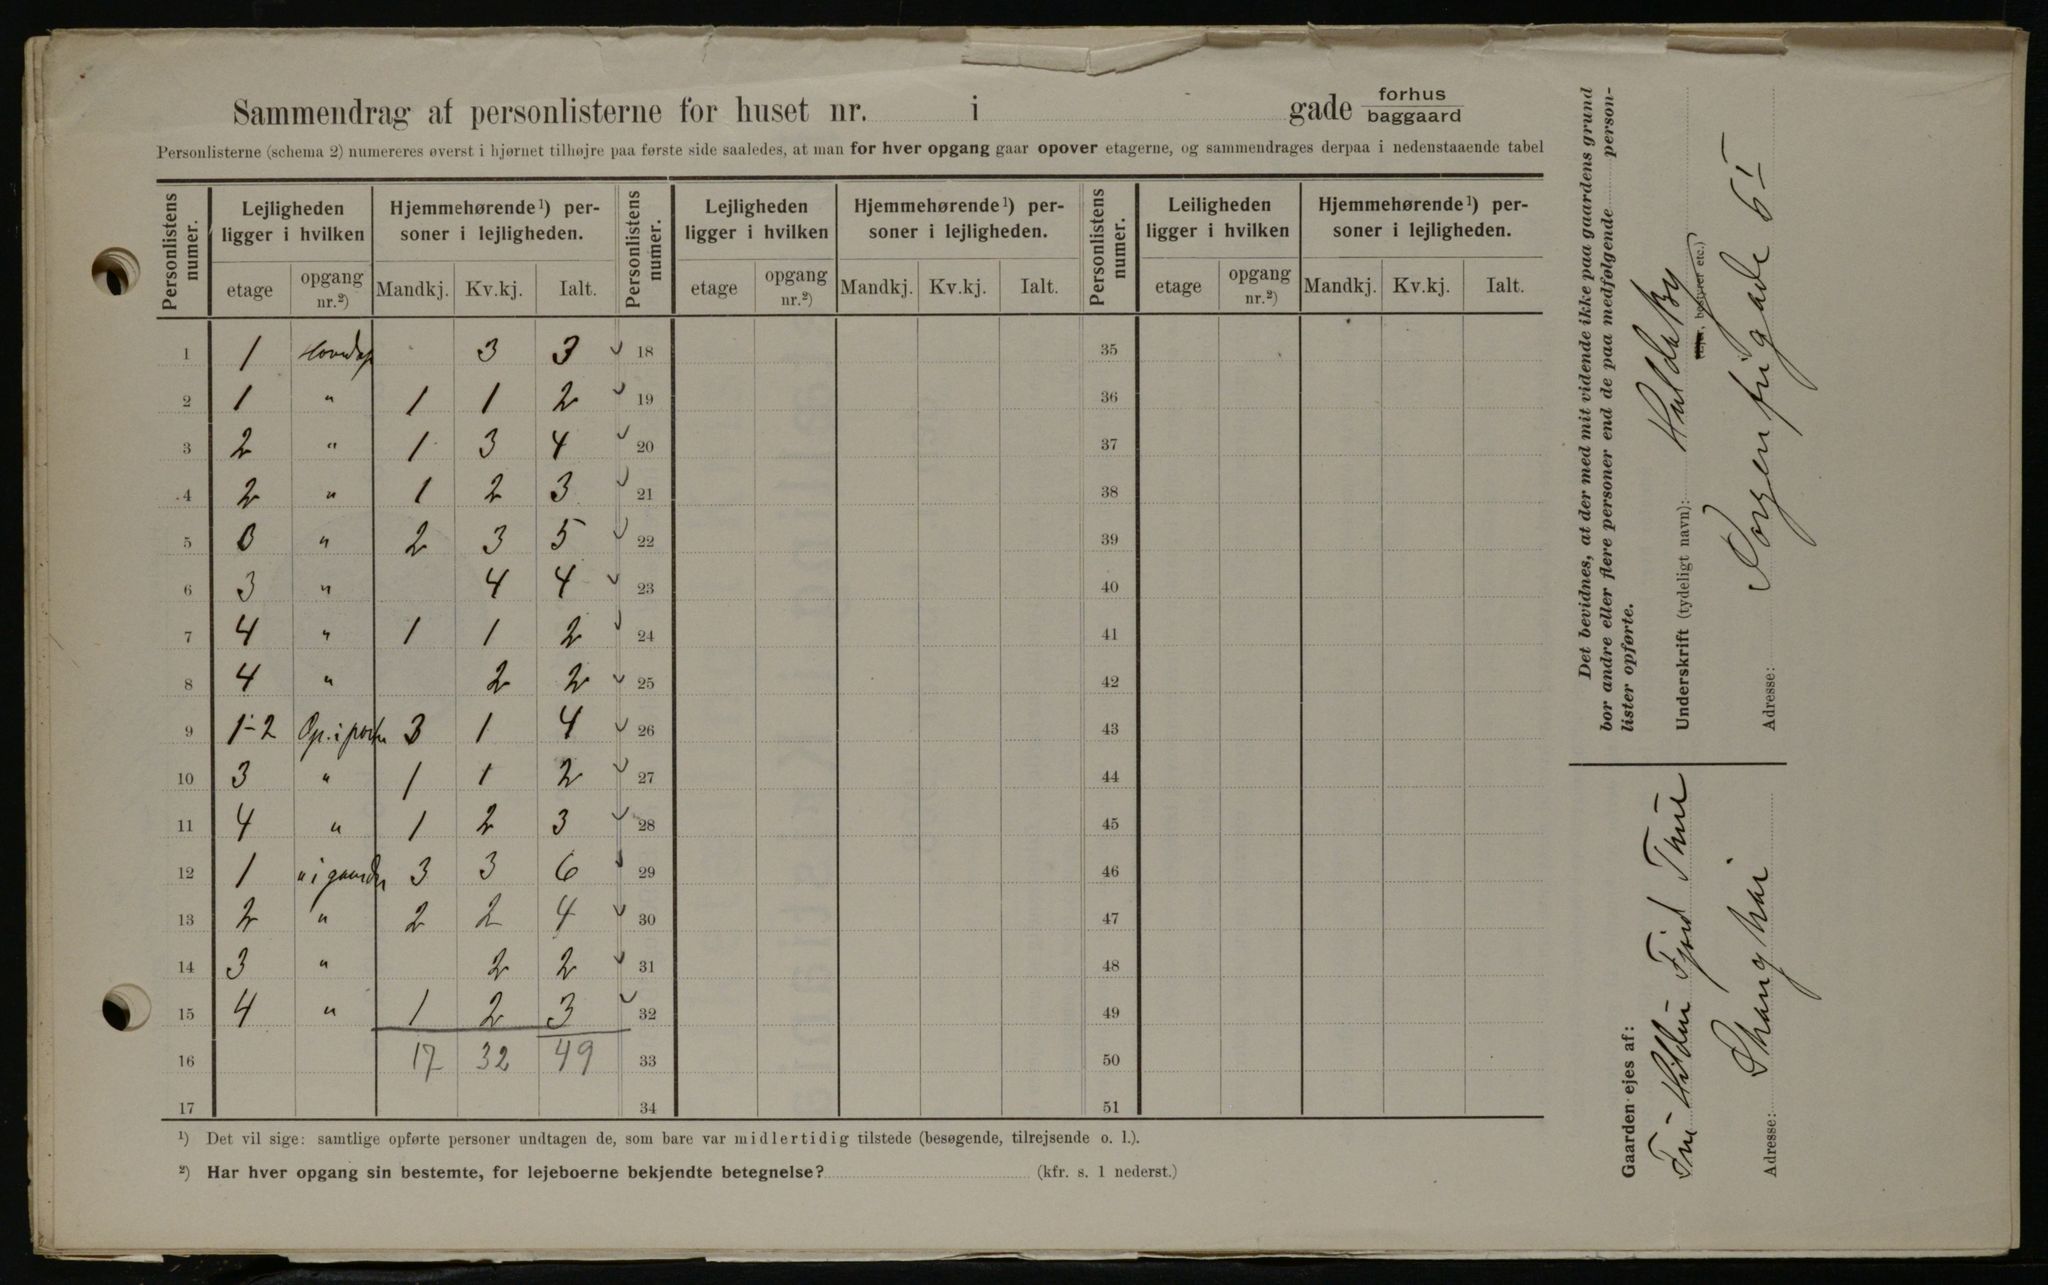 Sammendrag af personlisterne for huset nr. i gade forhus baggaard
Personlisterne (schema 2) numereres øverst i hjørnet tilhøjre paa første side saaledes, at man for hver opgang gaar opover etagerne, og sammendrages derpaa i nedenstaaende tabel
Personlistens numer. Lejligheden ligger i hvilken Hjemmehørende¹) personer i lejligheden. Personlistens numer. Lejligheden ligger i hvilken Hjemmehørende¹) personer i lejligheden. Personlistens numer. Leiligheden ligger i hvilken Hjemmehørende¹) personer i lejligheden.
etage opgang nr.²) Mandkj. Kv.kj. Ialt. etage opgang nr.²) Mandkj. Kv.kj. Ialt. etage opgang nr.²) Mandkj. Kv.kj. Ialt.
1 1 Hovedop 3 3 18 35
2 1 " 1 1 2 19 36
3 2 " 1 3 4 20 37
4 2 " 1 2 3 21 38
5 3 " 2 3 5 22 39
6 3 " 4 4 23 40
7 4 " 1 1 2 24 41
8 4 " 2 2 25 42
9 1-2 Op. i porten 3 1 4 26 43
10 3 " 1 1 2 27 44
11 4 " 1 2 3 28 45
12 1 " i gaarden 3 3 6 29 46
13 2 " 2 2 4 30 47
14 3 " 2 2 31 48
15 4 " 1 2 3 32 49
16 17 32 49 33 50
17 34 51
¹) Det vil sige: samtlige opførte personer undtagen de, som bare var midlertidig tilstede (besøgende, tilrejsende o. l.).
²) Har hver opgang sin bestemte, for lejeboerne bekjendte betegnelse? (kfr. s. 1 nederst.)
Det bevidnes, at der med mit vidende ikke paa gaardens grund
bor andre eller flere personer end de paa medfølgende person-
lister opførte.
Underskrift (tydeligt navn): Hulda By
(Ejer, bestyrer etc.)
Adresse: Sorgenfrigade 6 I
Gaarden ejes af:
Fru Hildur Fjord Thue
Adresse: Shanghai